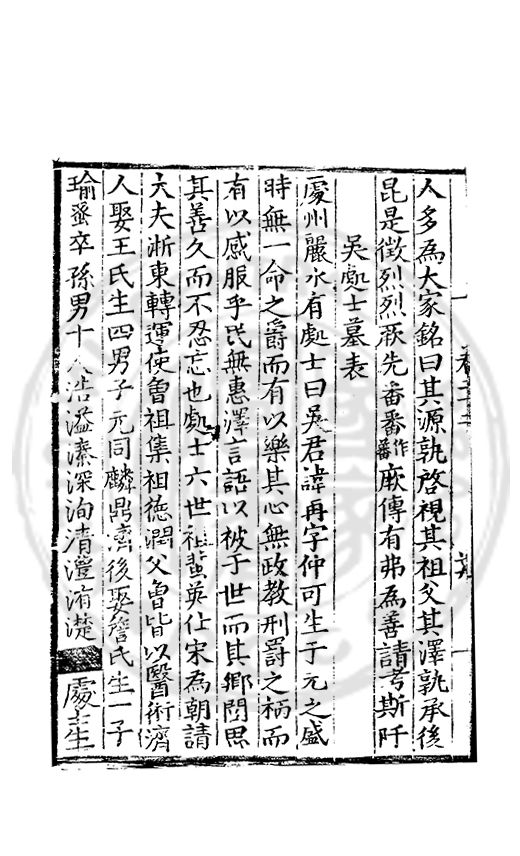 人多為大家銘曰其源孰啓視其祖父其澤孰承後
昆是徵烈烈厥先番番作蕃蕃厥傳有弗為善請考斯阡
吳處士墓表
處州麗水有處士曰吳君諱再字仲可生于元之盛
時無一命之爵而有以樂其心無政教刑罰之柄而
有以感服乎民無惠澤言語以被于世而其鄉閭思
其善久而不忍忘也處士六世祖蜚英仕宋為朝請
大夫淅東轉運使魯祖集祖德潤父魯皆以醫術濟
人娶王氏生四男子元同麟鼎濟後娶詹氏生一子
瑜蚤卒孫男十人浩溢濂深洵清澧洧濋處士生